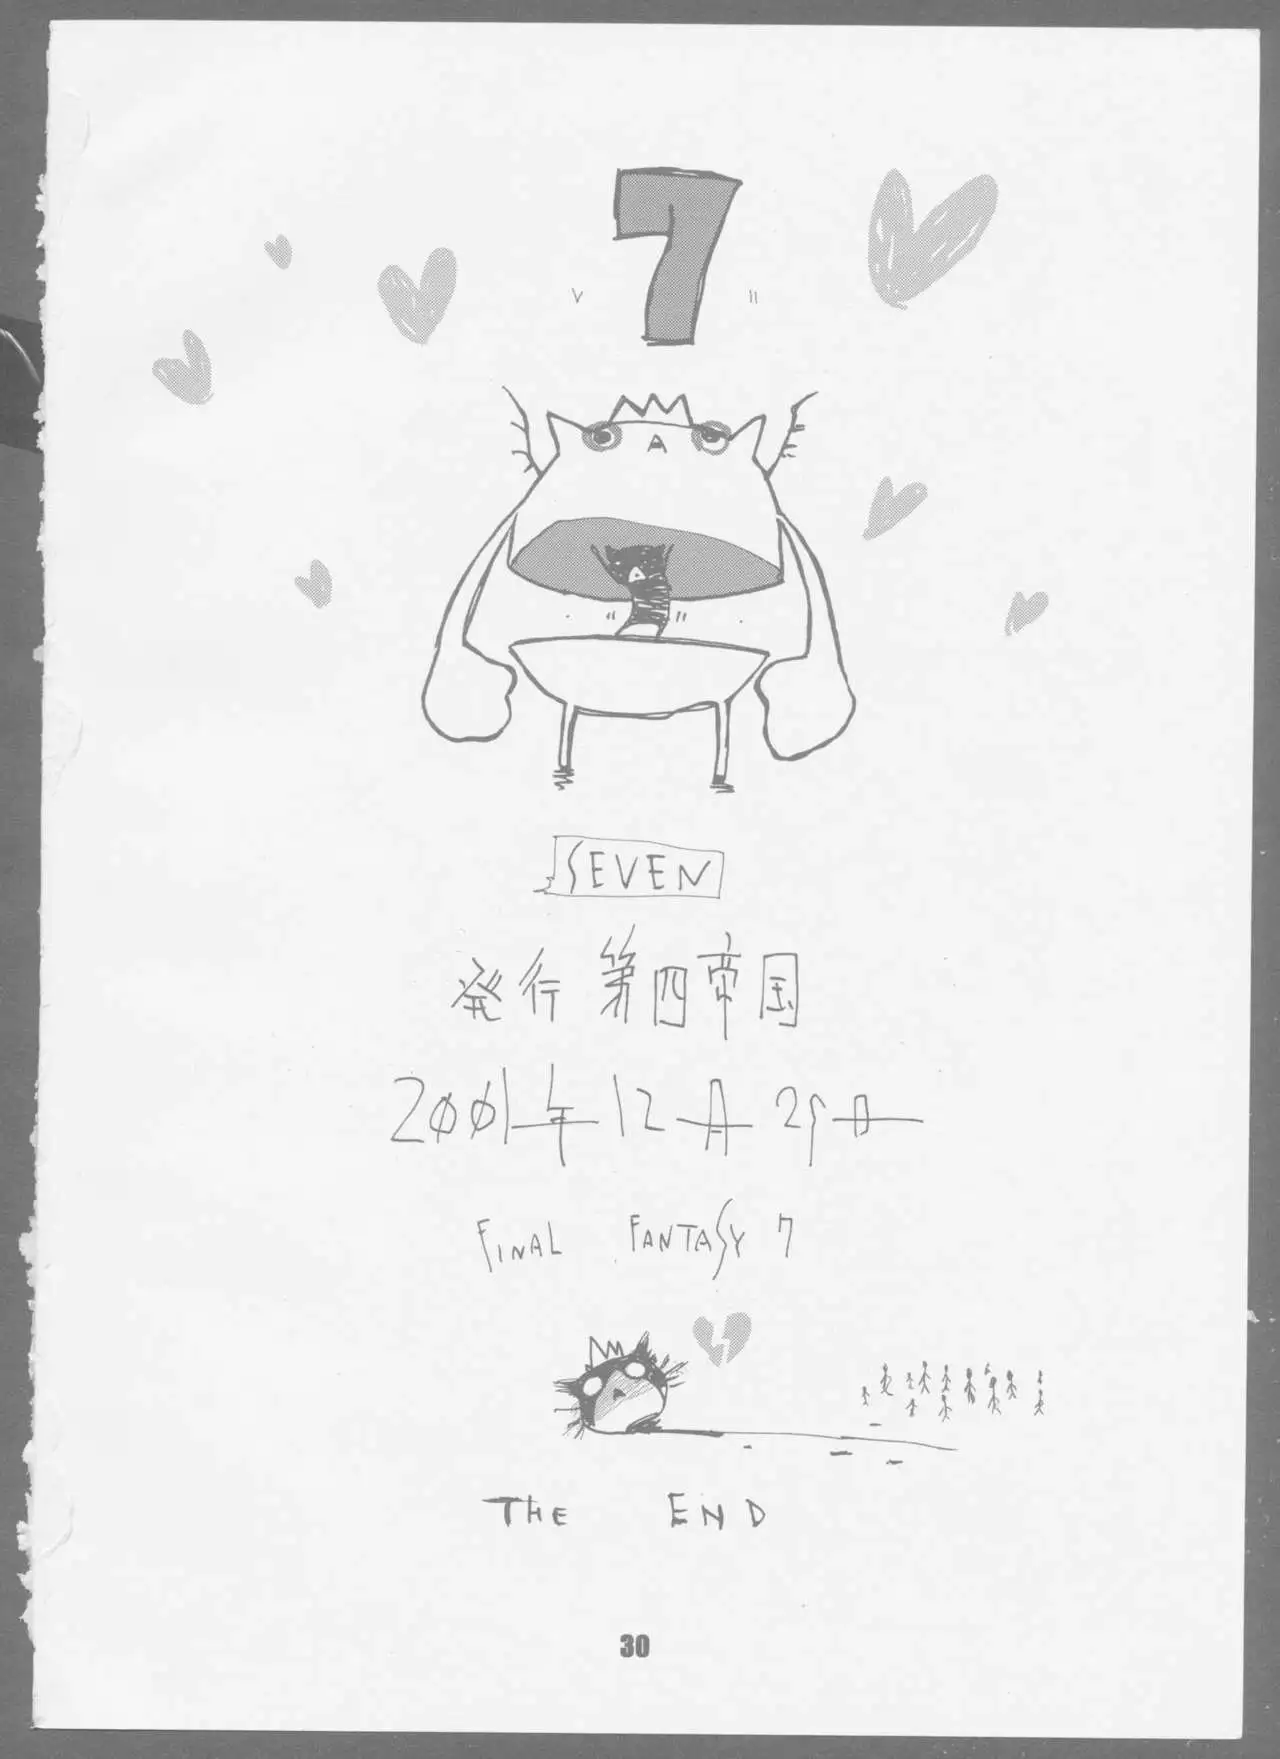 7
SEVEN
発行 第四帝国
2001年12月29日
FINAL FANTASY 7
THE END
30